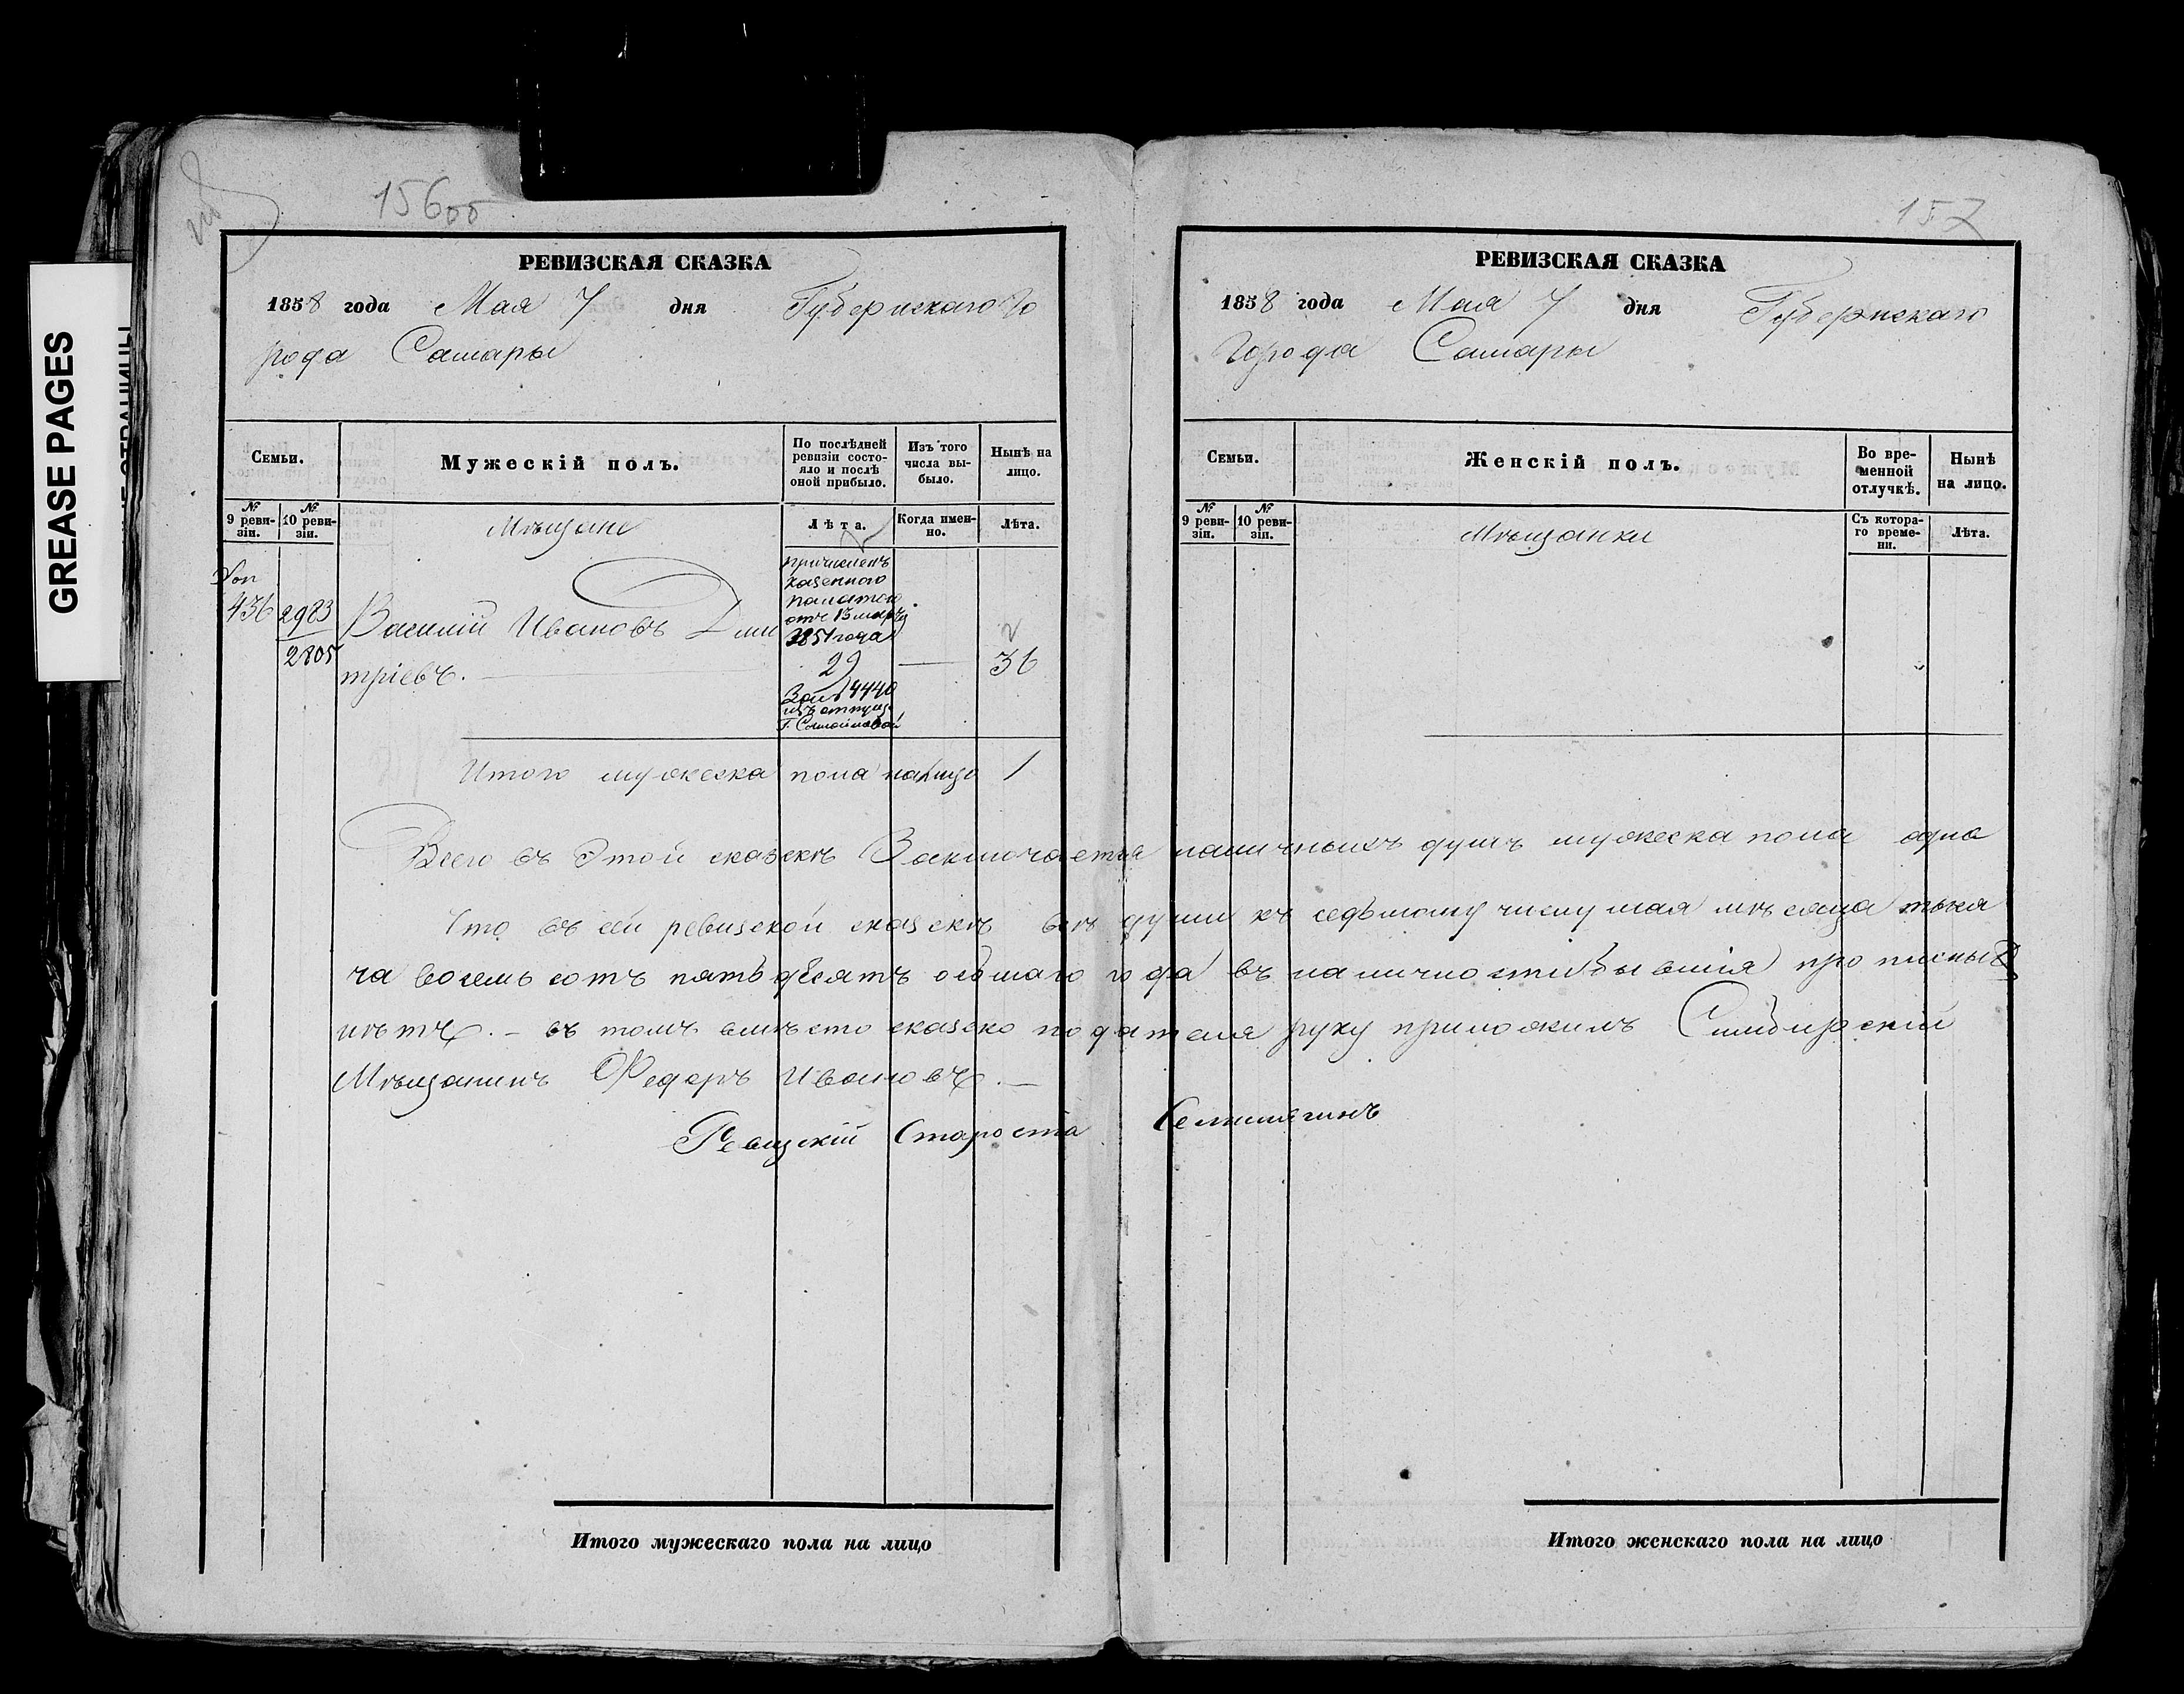 GREASE PAGES
156об
РЕВИЗСКАЯ СКАЗКА
1858 года Мая 7 дня Губернскаго Го
рода Самары
Семьи.
Мужескій полъ.
По послѣдней ревизіи состояло и послѣ оной прибыло.
Изъ того числа выбыло.
Нынѣ на лицо.
№ 9 ревизіи.
№ 10 ревизіи.
Мѣщане
Лѣта.
Когда именно.
Лѣта.
Доп
436
2983
2805
Василій Ивановъ Дми
тріевъ.
причисленъ
казенной
палатою
отъ 13 марта
1851 года
29
36
4440
изъ отпущ.
Итого мужеска пола налицо 1
157
РЕВИЗСКАЯ СКАЗКА
1858 года Мая 7 дня Губернскаго
Города Самары
Семьи.
Женскій полъ.
Во временной отлучкѣ.
Нынѣ на лицо.
№ 9 ревизіи.
№ 10 ревизіи.
Мѣщанки
Съ котораго времени.
Лѣта.
Всего въ Этой сказкѣ Заключается наличныхъ душъ мужеска пола одна
Что въ сей ревизской сказкѣ всѣ души къ седьмому числу мая мѣсяца тыся
ча восемь сотъ пятьдесятъ осьмаго года въ наличности бывшія прописныхъ
нѣтъ. – въ томъ вмѣсто сказко подателя руку приложилъ Симбирскій
Мѣщанинъ Федоръ Ивановъ. –
Ревизскій Староста
Итого мужескаго пола на лицо
Итого женскаго пола на лицо